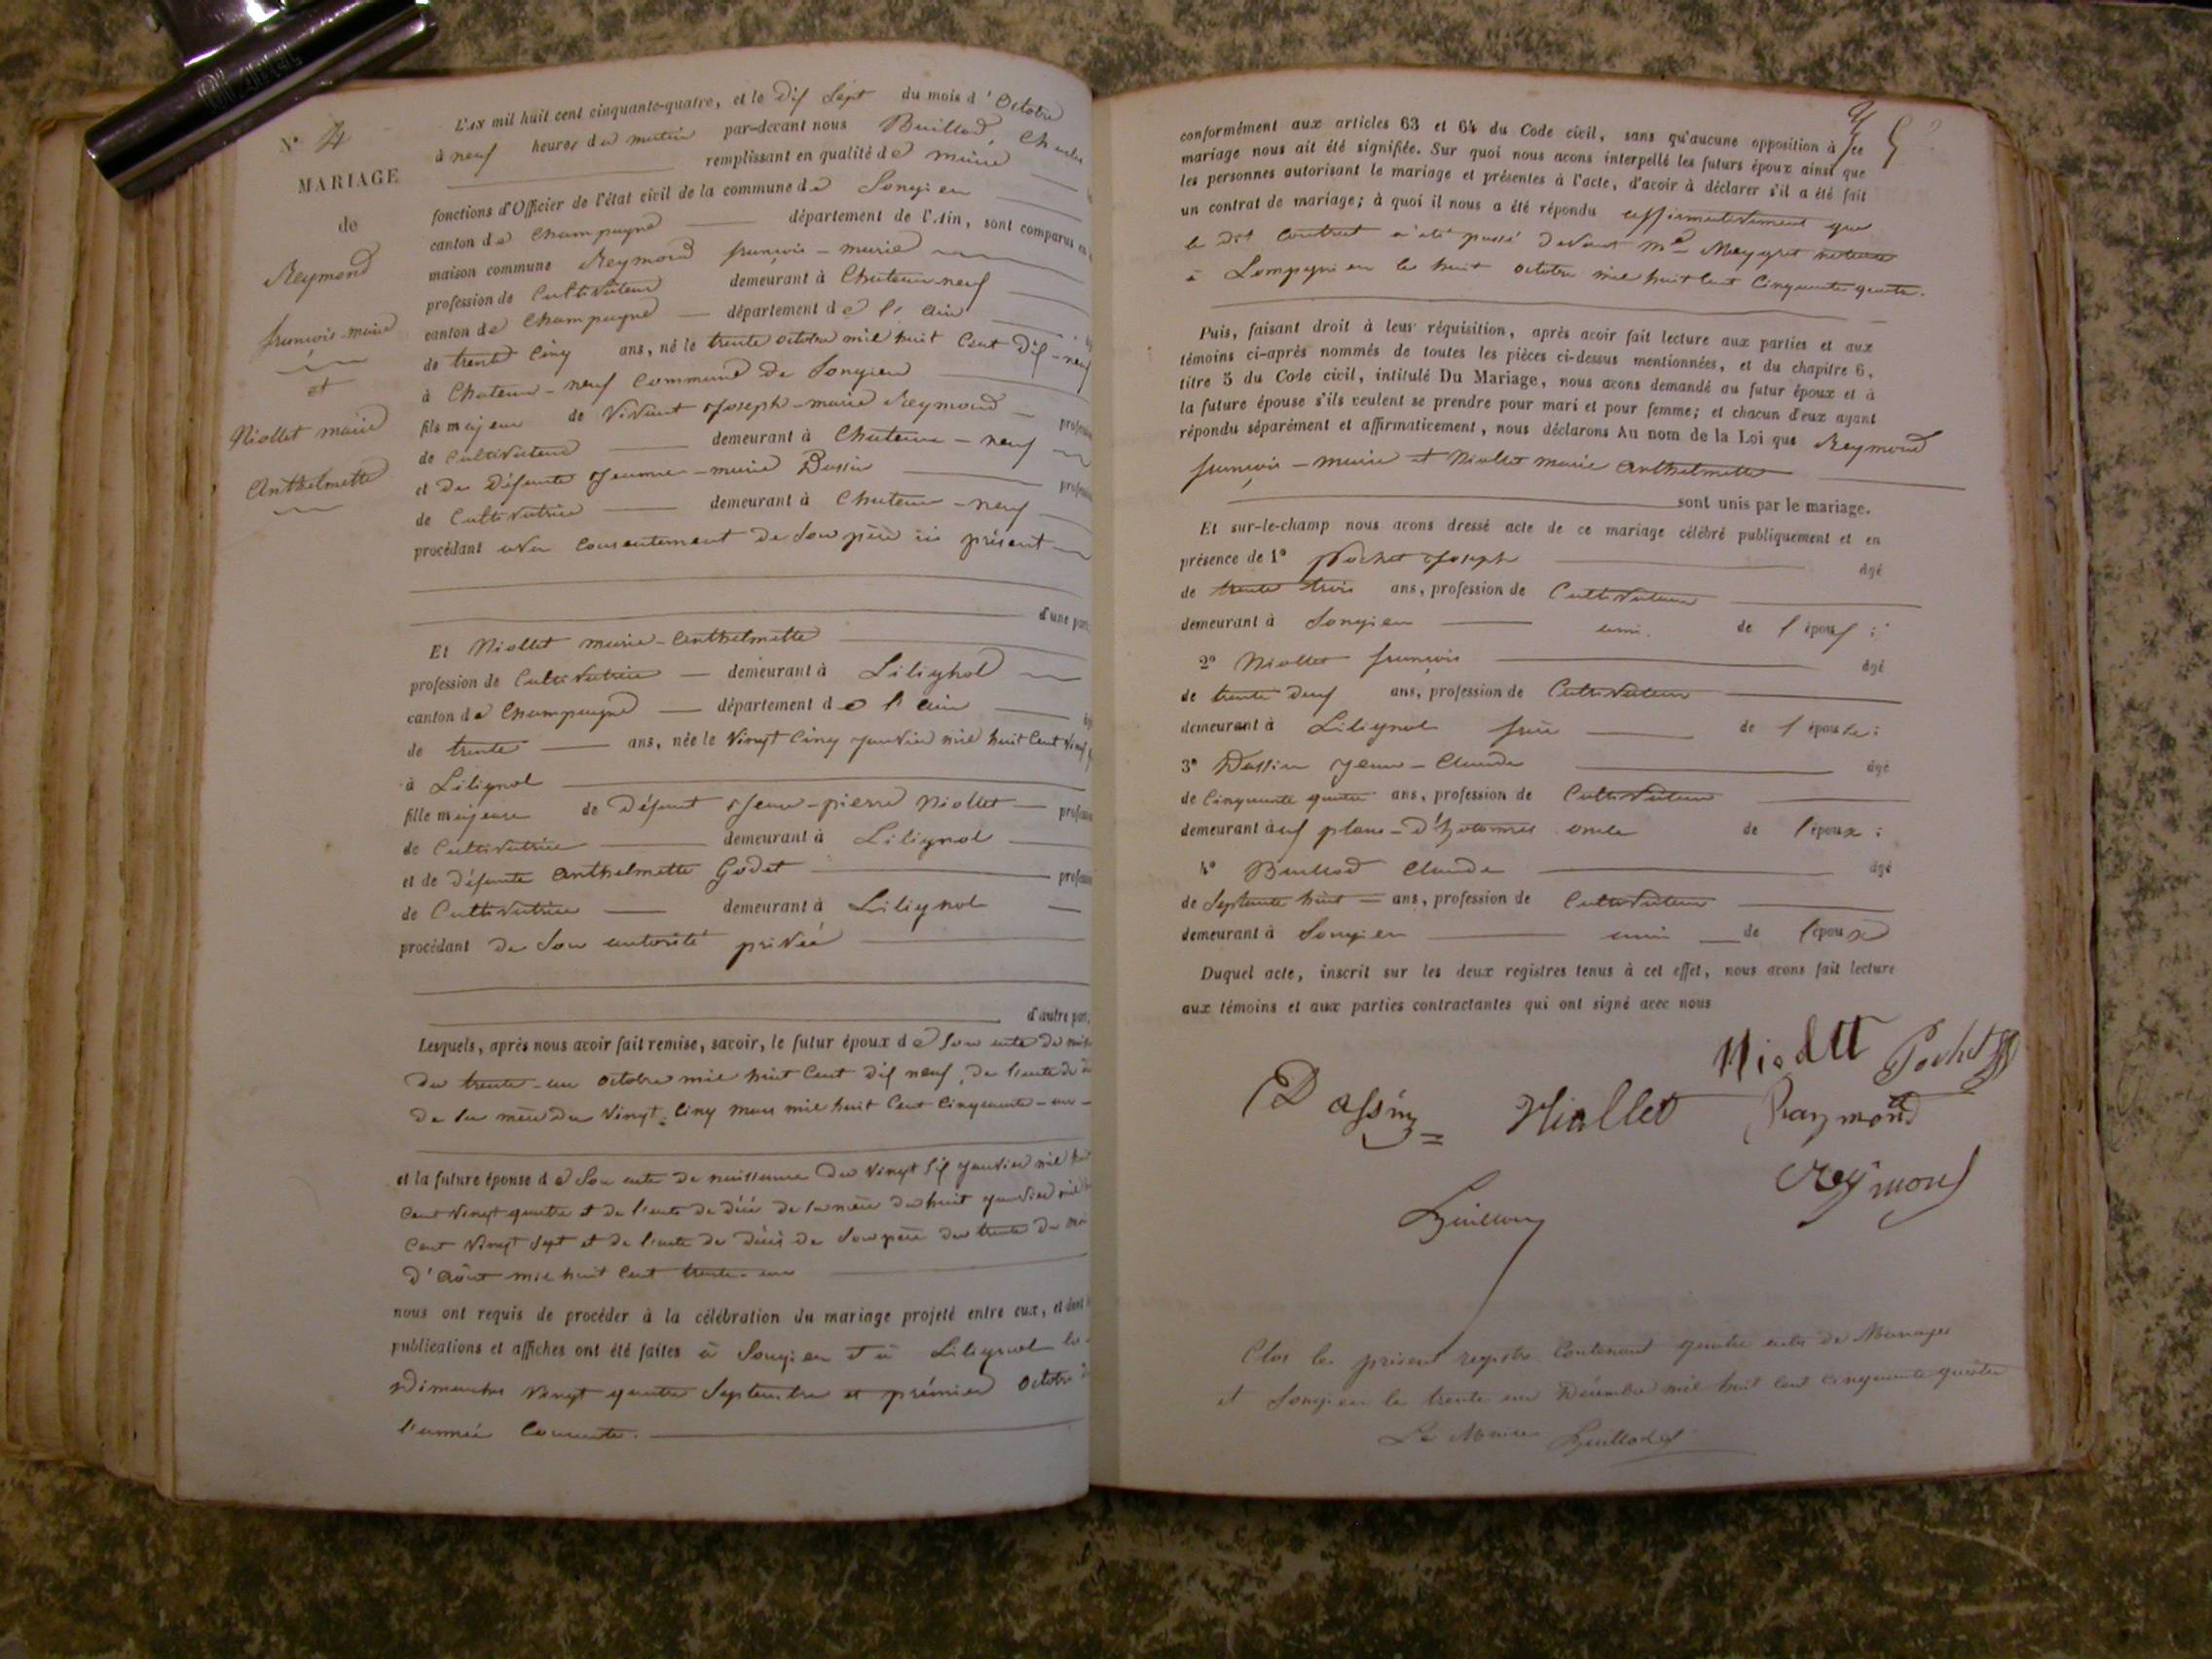 N° 4
MARIAGE
de
Reymond
françois-marie
et
Niollet marie
Anthelmette
L'AN mil huit cent cinquante-quatre, et le dix Sept du mois d'Octobre
à neuf heures du matin par-devant nous Buillod, Charles
remplissant en qualité de maire
fonctions d'Officier de l'état civil de la commune de Songieu
canton de Champagne département de l'Ain, sont comparus en
maison commune Reymond françois-marie
profession de Cultivateur demeurant à Chateau-neuf
canton de Champagne département de l'ain
de trente Cinq ans, né le trente octobre mil huit Cent dix-neuf
à Chateau-neuf Commune de Songieu
fils majeur de Vivant Joseph-marie Reymond
de Cultivateur demeurant à Chateau-neuf
et de Défunte Jeanne-marie Dassin
de Cultivatrice demeurant à Chateau-neuf
procédant avec Consentement de Son père ici présent
d'une part,
Et Niollet marie-Anthelmette
profession de Cultivatrice demeurant à Lilignol
canton de Champagne département de l'ain
de trente ans, née le Vingt Cinq janvier mil huit Cent Vingt
à Lilignol
fille majeure de Défunt Jean-pierre Niollet
de Cultivatrice demeurant à Lilignol
et de Défunte Anthelmette Godet
de Cultivatrice demeurant à Lilignol
procédant de Son autorité privée
d'autre part,
Lesquels, après nous avoir fait remise, savoir, le futur époux de Son acte de
du trente-un octobre mil huit Cent dix neuf, de l'acte de
de la mère du Vingt-Cinq mars mil huit Cent Cinquante-un
et la future épouse de Son acte de naissance du Vingt Six janvier mil huit
Cent Vingt quatre et de l'acte de décès de la mère du huit janvier mil
Cent Vingt Sept et de l'acte de décès de Son père du trente du mois
d'Août mil huit Cent trente-un
nous ont requis de procéder à la célébration du mariage projeté entre eux, et dont
publications et affiches ont été faites à Songieu et à Lilignol les
Dimanches Vingt quatre Septembre et prémier Octobre de
l'année Courante.
conformément aux articles 63 et 64 du Code civil, sans qu'aucune opposition à ce
mariage nous ait été signifiée. Sur quoi nous avons interpellé les futurs époux ainsi que
les personnes autorisant le mariage et présentes à l'acte, d'avoir à déclarer s'il a été fait
un contrat de mariage; à quoi il nous a été répondu affirmativement que
le dit Contrat a été passé devant Me Meygret notaire
à Lompgnieu le huit octobre mil huit Cent Cinquante quatre.
Puis, faisant droit à leur réquisition, après avoir fait lecture aux parties et aux
témoins ci-après nommés de toutes les pièces ci-dessus mentionnées, et du chapitre 6,
titre 5 du Code civil, intitulé Du Mariage, nous avons demandé au futur époux et à
la future épouse s'ils veulent se prendre pour mari et pour femme; et chacun d'eux ayant
répondu séparément et affirmativement, nous déclarons Au nom de la Loi que Reymond
françois-marie et Niollet marie Anthelmette
sont unis par le mariage.
Et sur-le-champ nous avons dressé acte de ce mariage célébré publiquement et en
présence de 1° Pochet Joseph âgé
de trente trois ans, profession de Cultivateur
demeurant à Songieu ami de l'époux;
2° Niollet françois âgé
de trente deux ans, profession de Cultivateur
demeurant à Lilignol frère de l'épouse;
3° Dassin Jean-Claude âgé
de Cinquante quatre ans, profession de Cultivateur
demeurant à plans-d'hotonnes oncle de l'époux;
4° Buillod Claude âgé
de Septante huit ans, profession de Cultivateur
demeurant à Songieu ami de l'époux
Duquel acte, inscrit sur les deux registres tenus à cet effet, nous avons fait lecture
aux témoins et aux parties contractantes qui ont signé avec nous
Niollet Pochet
Dassin Niallet Raymond
Reymond
Buillod
Clos le présent registre Contenant quatre actes de Mariages
et Songieu le trente un Décembre mil huit cent cinquante quatre
Le Maire Buillod